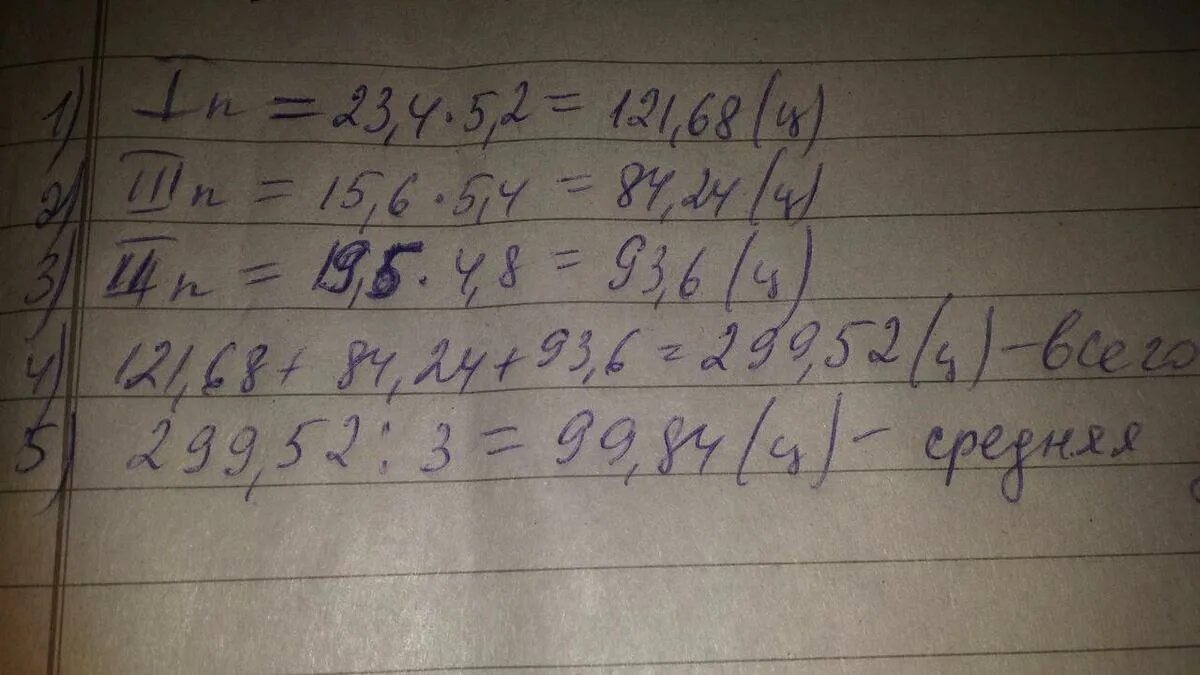 1) I п = 23,4·5,2 = 121,68 (ц)
2) III п = 15,6·5,4 = 84,24 (ц)
3) III п = 19,5·4,8 = 93,6 (ц)
4) 121,68 + 84,24 + 93,6 = 299,52 (ц) – всего
5) 299,52 : 3 = 99,84 (ц) – средняя